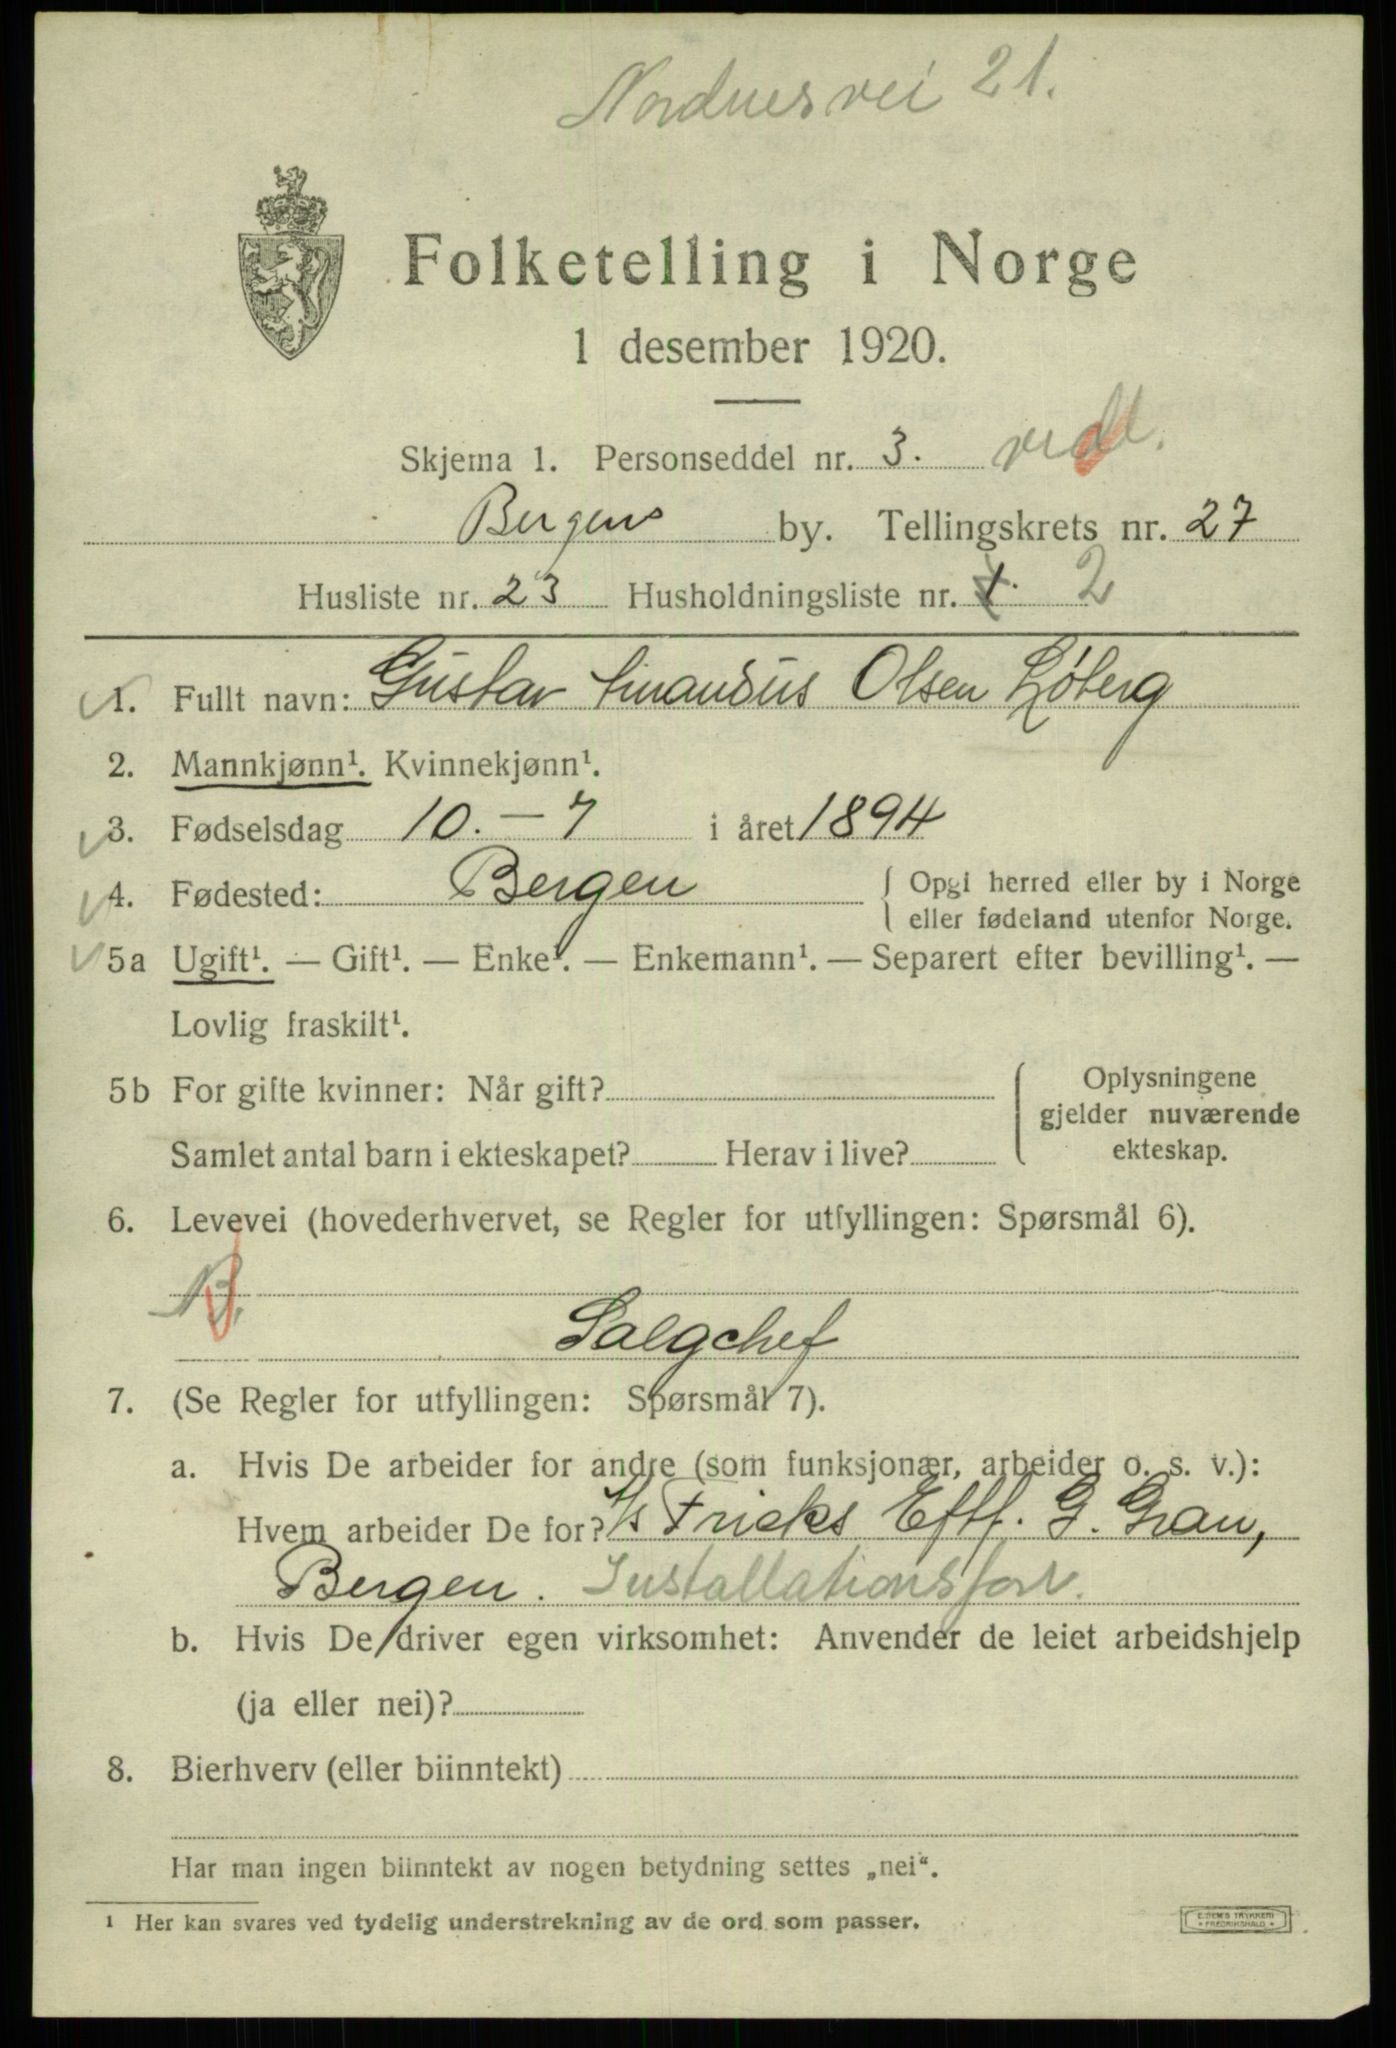 Nordnesvei 21.
Folketelling i Norge
1 desember 1920.
Skjema 1. Personseddel nr. 3.
Bergens by. Tellingskrets nr. 27
Husliste nr. 23 Husholdningsliste nr. 1. 2
1. Fullt navn: Gustav Amandus Olsen Løberg
2. Mannkjønn¹. Kvinnekjønn¹.
3. Fødselsdag 10. – 7 i året 1894
4. Fødested: Bergen { Opgi herred eller by i Norge
eller fødeland utenfor Norge.
5a Ugift¹. — Gift¹. — Enke¹. — Enkemann¹. — Separert efter bevilling¹. —
Lovlig fraskilt¹.
5b For gifte kvinner: Når gift?
Samlet antal barn i ekteskapet? Herav i live?
{ Oplysningene
gjelder nuværende
ekteskap.
6. Levevei (hovederhvervet, se Regler for utfyllingen: Spørsmål 6).
B.
Salgchef
7. (Se Regler for utfyllingen: Spørsmål 7).
a. Hvis De arbeider for andre (som funksjonær, arbeider o. s. v.):
Hvem arbeider De for? A/s Fricks Eftf. G. Grau,
Bergen. Installationsforr.
b. Hvis De driver egen virksomhet: Anvender de leiet arbeidshjelp
(ja eller nei)?
8. Bierhverv (eller biinntekt)
Har man ingen biinntekt av nogen betydning settes „nei“.
¹ Her kan svares ved tydelig understrekning av de ord som passer.
E. SEM'S TRYKKERI
* FREDRIKSHALD *